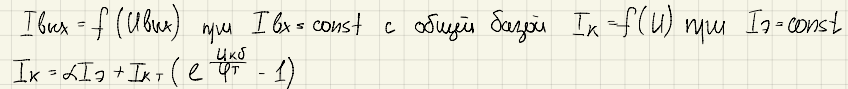 Iвых = f(Uвых) при Iвх = const с общей базой Iк = f(U) при Iэ = const
Iк = αIэ + Iкт(e^(Uкб/φт) - 1)